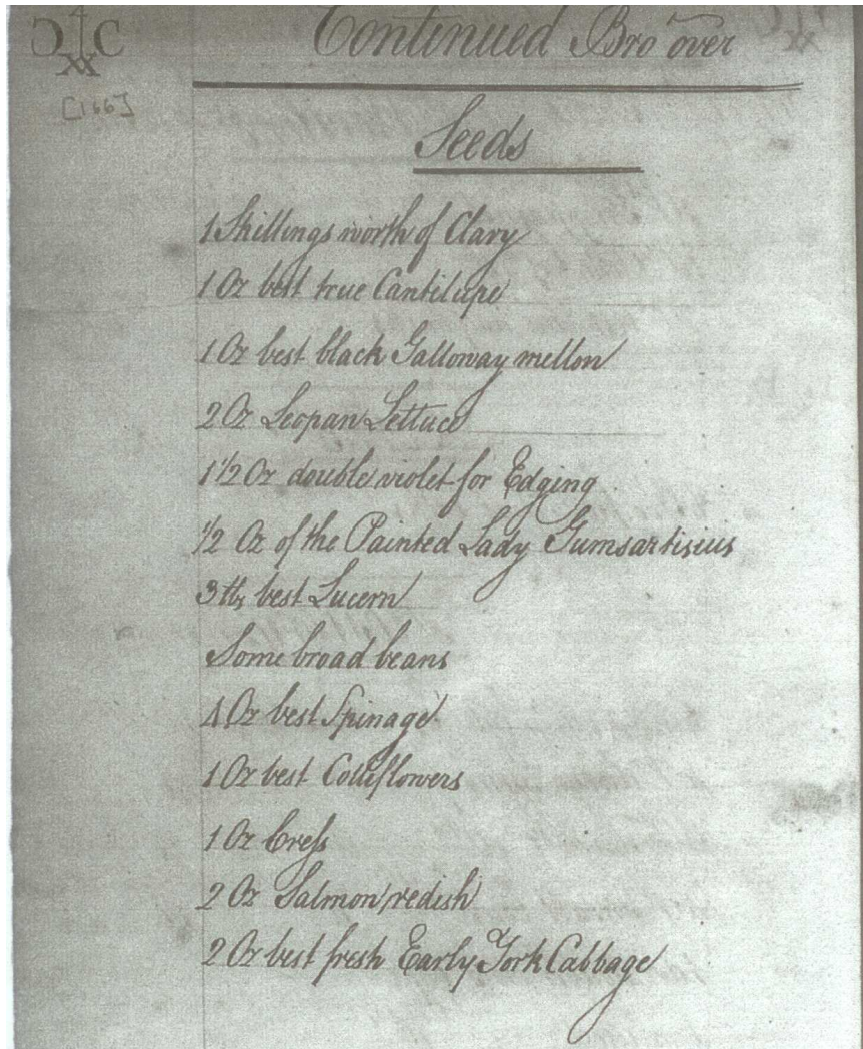 Continued Bro over
[166]
Seeds
1 Shillings worth of Clary
1 Oz best true Cantilupe
1 Oz best black Galloway mellon
2 Oz Leopan Lettuce
1 1/2 Oz double violet for Edging
1/2 Oz of the Painted Lady Gumsartisius
3 lb best Lucern
Some broad beans
4 Oz best Spinage
1 Oz best Colliflowers
1 Oz Cress
2 Oz Salmon redish
2 Oz best fresh Early York Cabbage